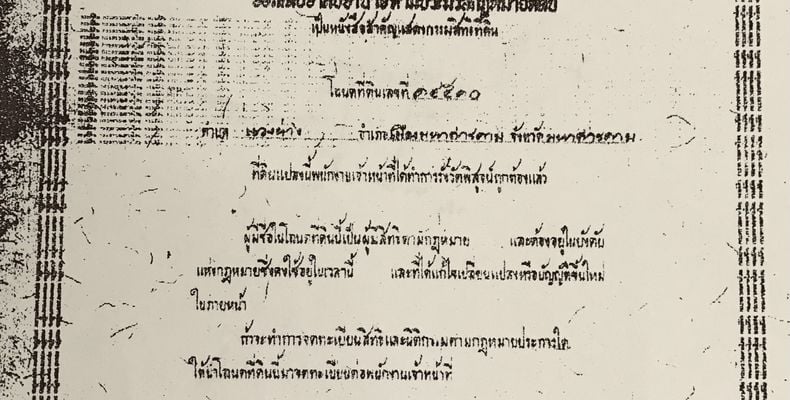 ออกโดยอาศัยอำนาจตามประมวลกฎหมายที่ดิน
เป็นหนังสือสำคัญแสดงกรรมสิทธิ์ที่ดิน
โฉนดที่ดินเลขที่
ตำบล แวงน่าง อำเภอเมืองมหาสารคาม จังหวัดมหาสารคาม
ที่ดินแปลงนี้พนักงานเจ้าหน้าที่ได้ทำการรังวัดพิสูจน์ถูกต้องแล้ว
ผู้มีชื่อในโฉนดที่ดินนี้เป็นผู้มีสิทธิตามกฎหมาย และต้องอยู่ในบังคับ
แห่งกฎหมายซึ่งคงใช้อยู่ในเวลานี้ และที่ได้แก้ไขเปลี่ยนแปลงหรือบัญญัติขึ้นใหม่
ในภายหน้า
ถ้าจะทำการจดทะเบียนสิทธิและนิติกรรมตามกฎหมายประการใด
ให้นำโฉนดที่ดินนี้มาจดทะเบียนต่อพนักงานเจ้าหน้าที่